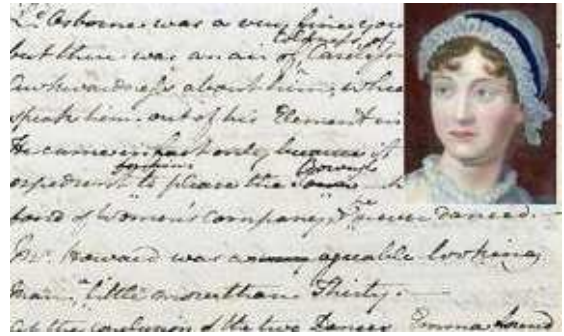 Ld. Osborne was a very fine you
but there was an air of Careless
coldness, of
Awkwardness about him, whic
speak him out of his Element in
He came in fact only because it
expedient to please the
Borough
fond of Women's company, & he never danced.—
Mr. Howard was an agreable looking
Man, a little more than Thirty.—
At the conclusion of the two Dances, Emma found